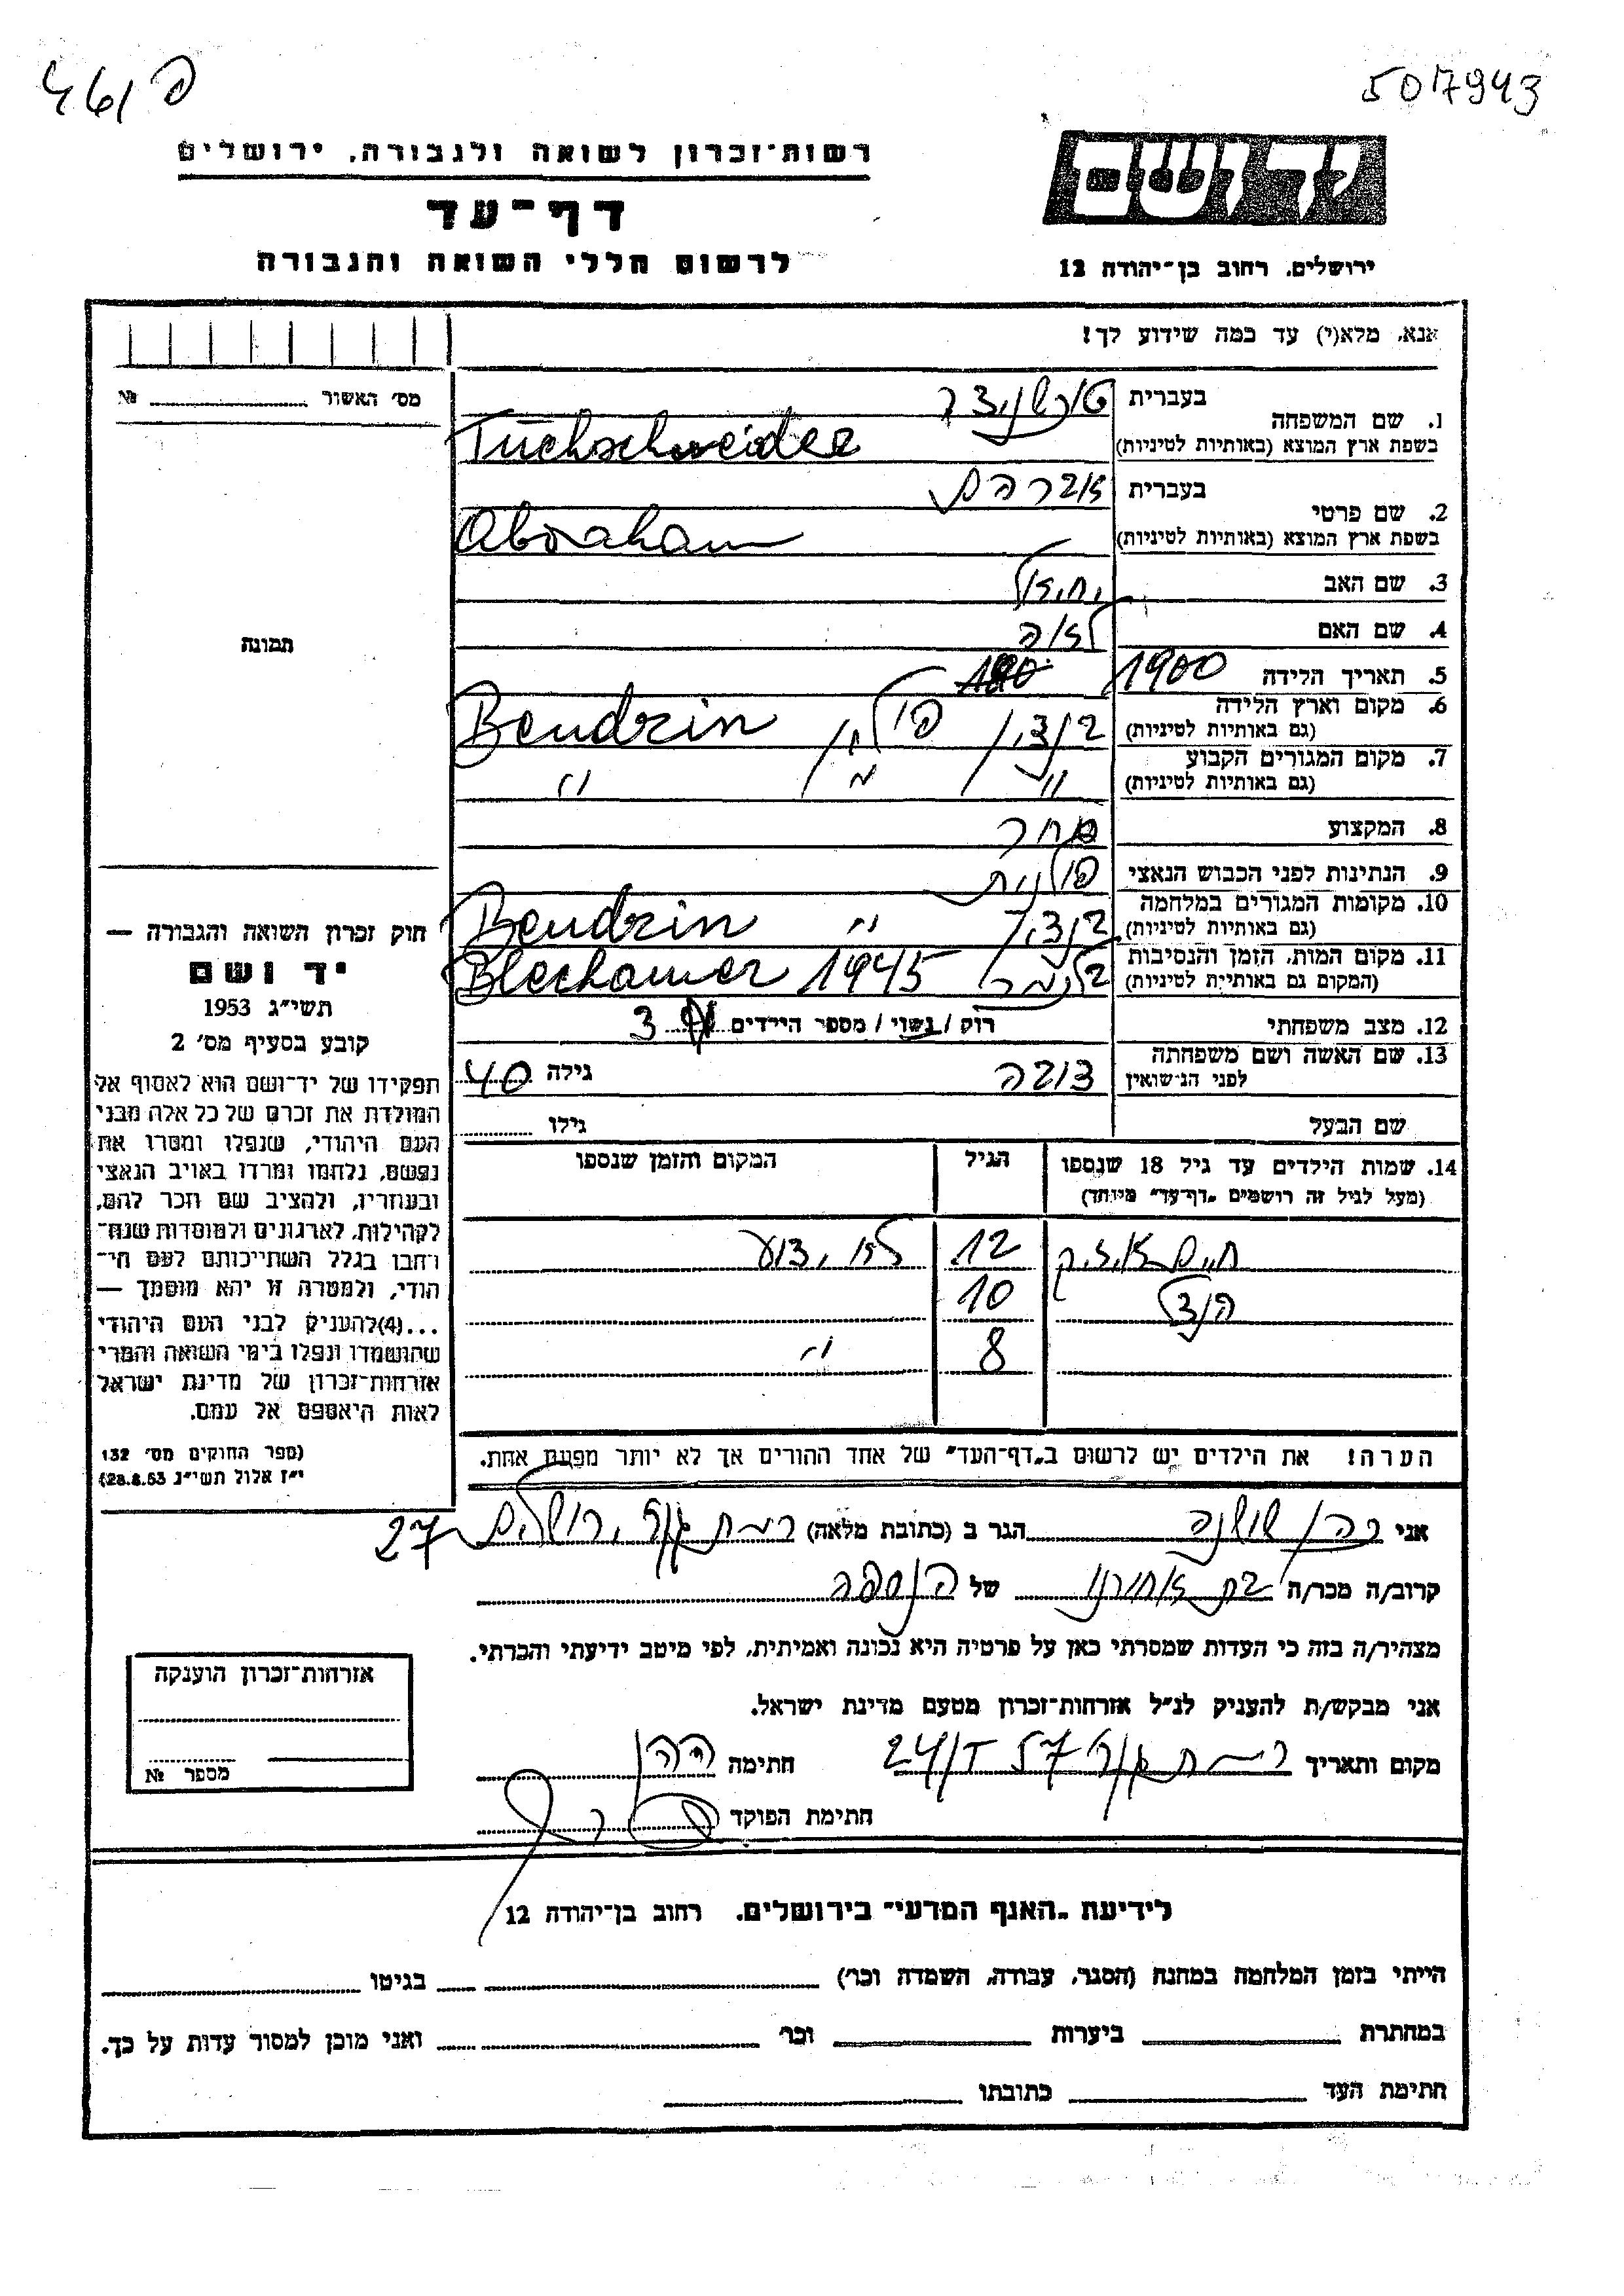 461/פ
507943
רשות־זכרון לשואה ולגבורה, ירושלים
דף־עד
לרשום חללי השואה והגבורה
ידושם
ירושלים, רחוב בן־יהודה 12
אנא, מלא(י) עד כמה שידוע לך!
מס׳ האשור № 
1. שם המשפחה
בעברית
בשפת ארץ המוצא (באותיות לטיניות) Tuchschneider
2. שם פרטי
בעברית אברהם
בשפת ארץ המוצא (באותיות לטיניות) Abraham
3. שם האב יחיאל
4. שם האם לאה
5. תאריך הלידה 1900
6. מקום וארץ הלידה בנדצין פולין Bendzin
(גם באותיות לטיניות)
7. מקום המגורים הקבוע " " "
(גם באותיות לטיניות)
8. המקצוע סוחר
9. הנתינות לפני הכבוש הנאצי פולנית
10. מקומות המגורים במלחמה Bendzin "
(גם באותיות לטיניות)
11. מקום המות, הזמן והנסיבות Blechamer 1945
(המקום גם באותיות לטיניות)
12. מצב משפחתי רווק / נשוי / מספר הילדים 3
13. שם האשה ושם משפחתה
לפני הנישואין גילה 40
שם הבעל גילו
תמונה
חוק זכרון השואה והגבורה —
יד ושם
תשי״ג 1953
קובע בסעיף מס׳ 2
תפקידו של יד־ושם הוא לאסוף אל
המולדת את זכרם של כל אלה מבני
העם היהודי, שנפלו ומסרו את
נפשם, נלחמו ומרדו באויב הנאצי
ובעוזריו, ולהציב שם וזכר להם,
לקהילות, לארגונים ולמוסדות שנח־
רבו בגלל השתייכותם לעם הי־
הודי, ולמטרה זו יהא מוסמך —
...(4) להעניק לבני העם היהודי
שהושמדו ונפלו בימי השואה והמרי
אזרחות־זכרון של מדינת ישראל
לאות היאספם אל עמם.
(ספר החוקים מס׳ 132
י״ז אלול תשי״ג 28.8.53)
14. שמות הילדים עד גיל 18 שנספו
(מעל לגיל זה רושמים „דף־עד״ מיוחד)
הגיל
המקום והזמן שנספו
חיים אייזיק 12 לא ידוע
10
8 "
הערה! את הילדים יש לרשום ב„דף־העד״ של אחד ההורים אך לא יותר מפעם אחת.
אני שושנה הגר ב (כתובת מלאה) רמת גן, ירושלים 27
קרוב/ה מכר/ה בת אחותו של הנספה
מצהיר/ה בזה כי העדות שמסרתי כאן על פרטיה היא נכונה ואמיתית, לפי מיטב ידיעתי והכרתי.
אני מבקש/ת להעניק לנ״ל אזרחות־זכרון מטעם מדינת ישראל.
מקום ותאריך רמת גן 24/ 57 חתימה
חתימת הפוקד
אזרחות־זכרון הוענקה
מספר №
לידיעת „האגף המדעי״ בירושלים. רחוב בן־יהודה 12
הייתי בזמן המלחמה במחנה (הסגר, עבודה, השמדה וכו׳) בגיטו
במחתרת ביערות וכו׳ ואני מוכן למסור עדות על כך.
חתימת העד כתובתו